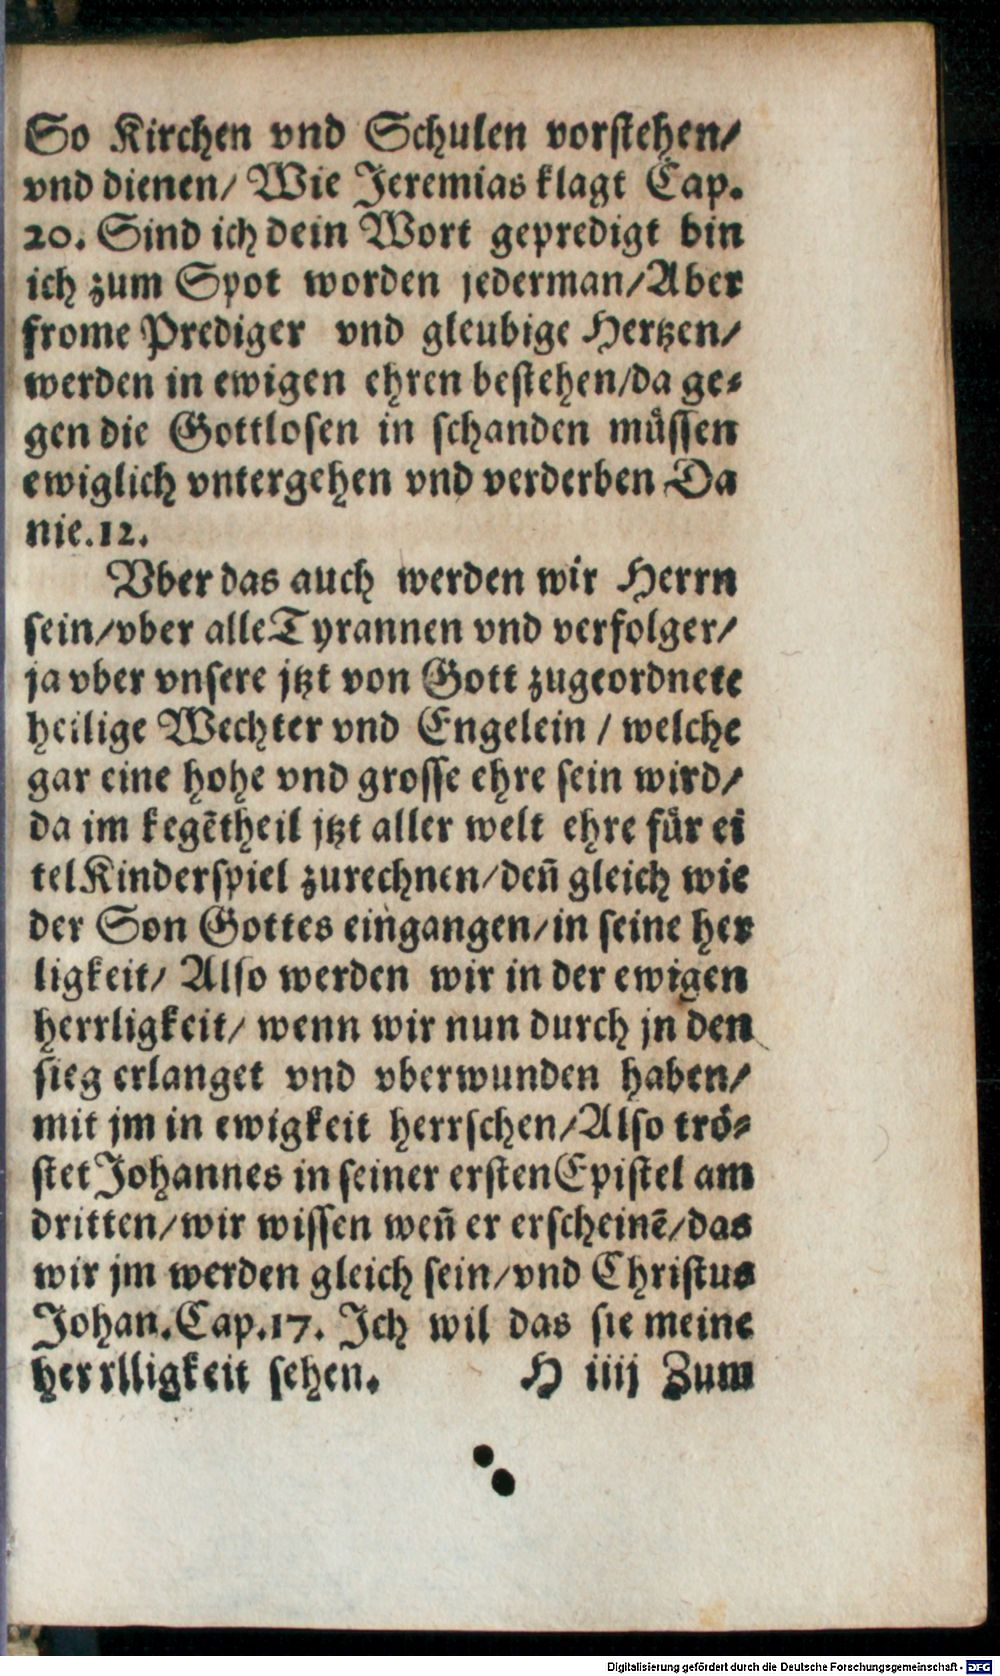 So Kirchen vnd Schulen vorstehen/
vnd dienen/ Wie Jeremias klagt Cap.
20. Sind ich dein Wort gepredigt bin
ich zum Spot worden jederman/Aber
frome Prediger vnd gleubige Hertzen/
werden in ewigen ehren bestehen/da ge⸗
gen die Gottlosen in schanden muͤssen
ewiglich vntergehen vnd verderben Da
nie.12.
Vber das auch werden wir Herrn
sein/vber alle Tyrannen vnd verfolger/
ja vber vnsere jtzt von Gott zugeordnete
heilige Wechter vnd Engelein / welche
gar eine hohe vnd grosse ehre sein wird/
da im kegẽtheil jtzt aller welt ehre fuͤr ei
tel Kinderspiel zurechnen/deñ gleich wie
der Son Gottes eingangen/in seine her
ligkeit/ Also werden wir in der ewigen
herrligkeit/ wenn wir nun durch jn den
sieg erlanget vnd vberwunden haben/
mit jm in ewigkeit herrschen/Also troͤ⸗
stet Johannes in seiner ersten Epistel am
dritten/wir wissen weñ er erscheinẽ/das
wir jm werden gleich sein/vnd Christus
Johan.Cap.17. Ich wil das sie meine
herrlligkeit sehen. H iiij Zum
Digitalisierung gefördert durch die Deutsche Forschungsgemeinschaft - DFG